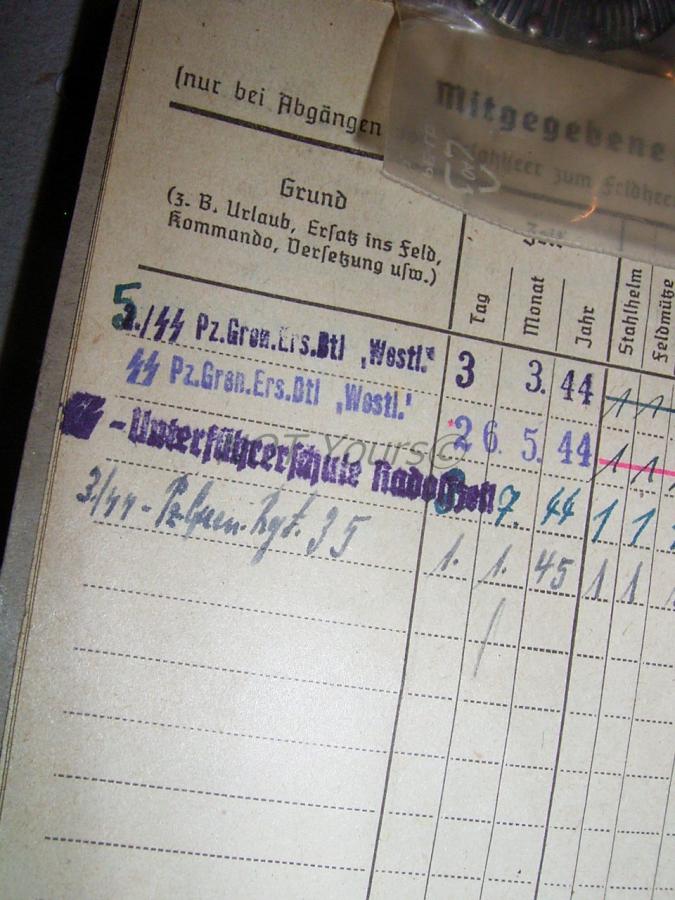 (nur bei Abgängen
Mitgegebene
zum Feldheer
Grund
(z. B. Urlaub, Ersatz ins Feld,
Kommando, Versetzung usw.)
Tag Monat Jahr Stahlhelm Feldmütze
5./SS Pz.Gren.Ers.Btl „Westl." 3 3. 44 1 1
SS Pz.Gren.Ers.Btl „Westl." 26. 5. 44 1 1
SS-Unterführerschule Radolfzell 7. 44 1 1
3/SS-Pz.Gren.Rgt. 35 1. 1. 45 1 1
NOT Yours©